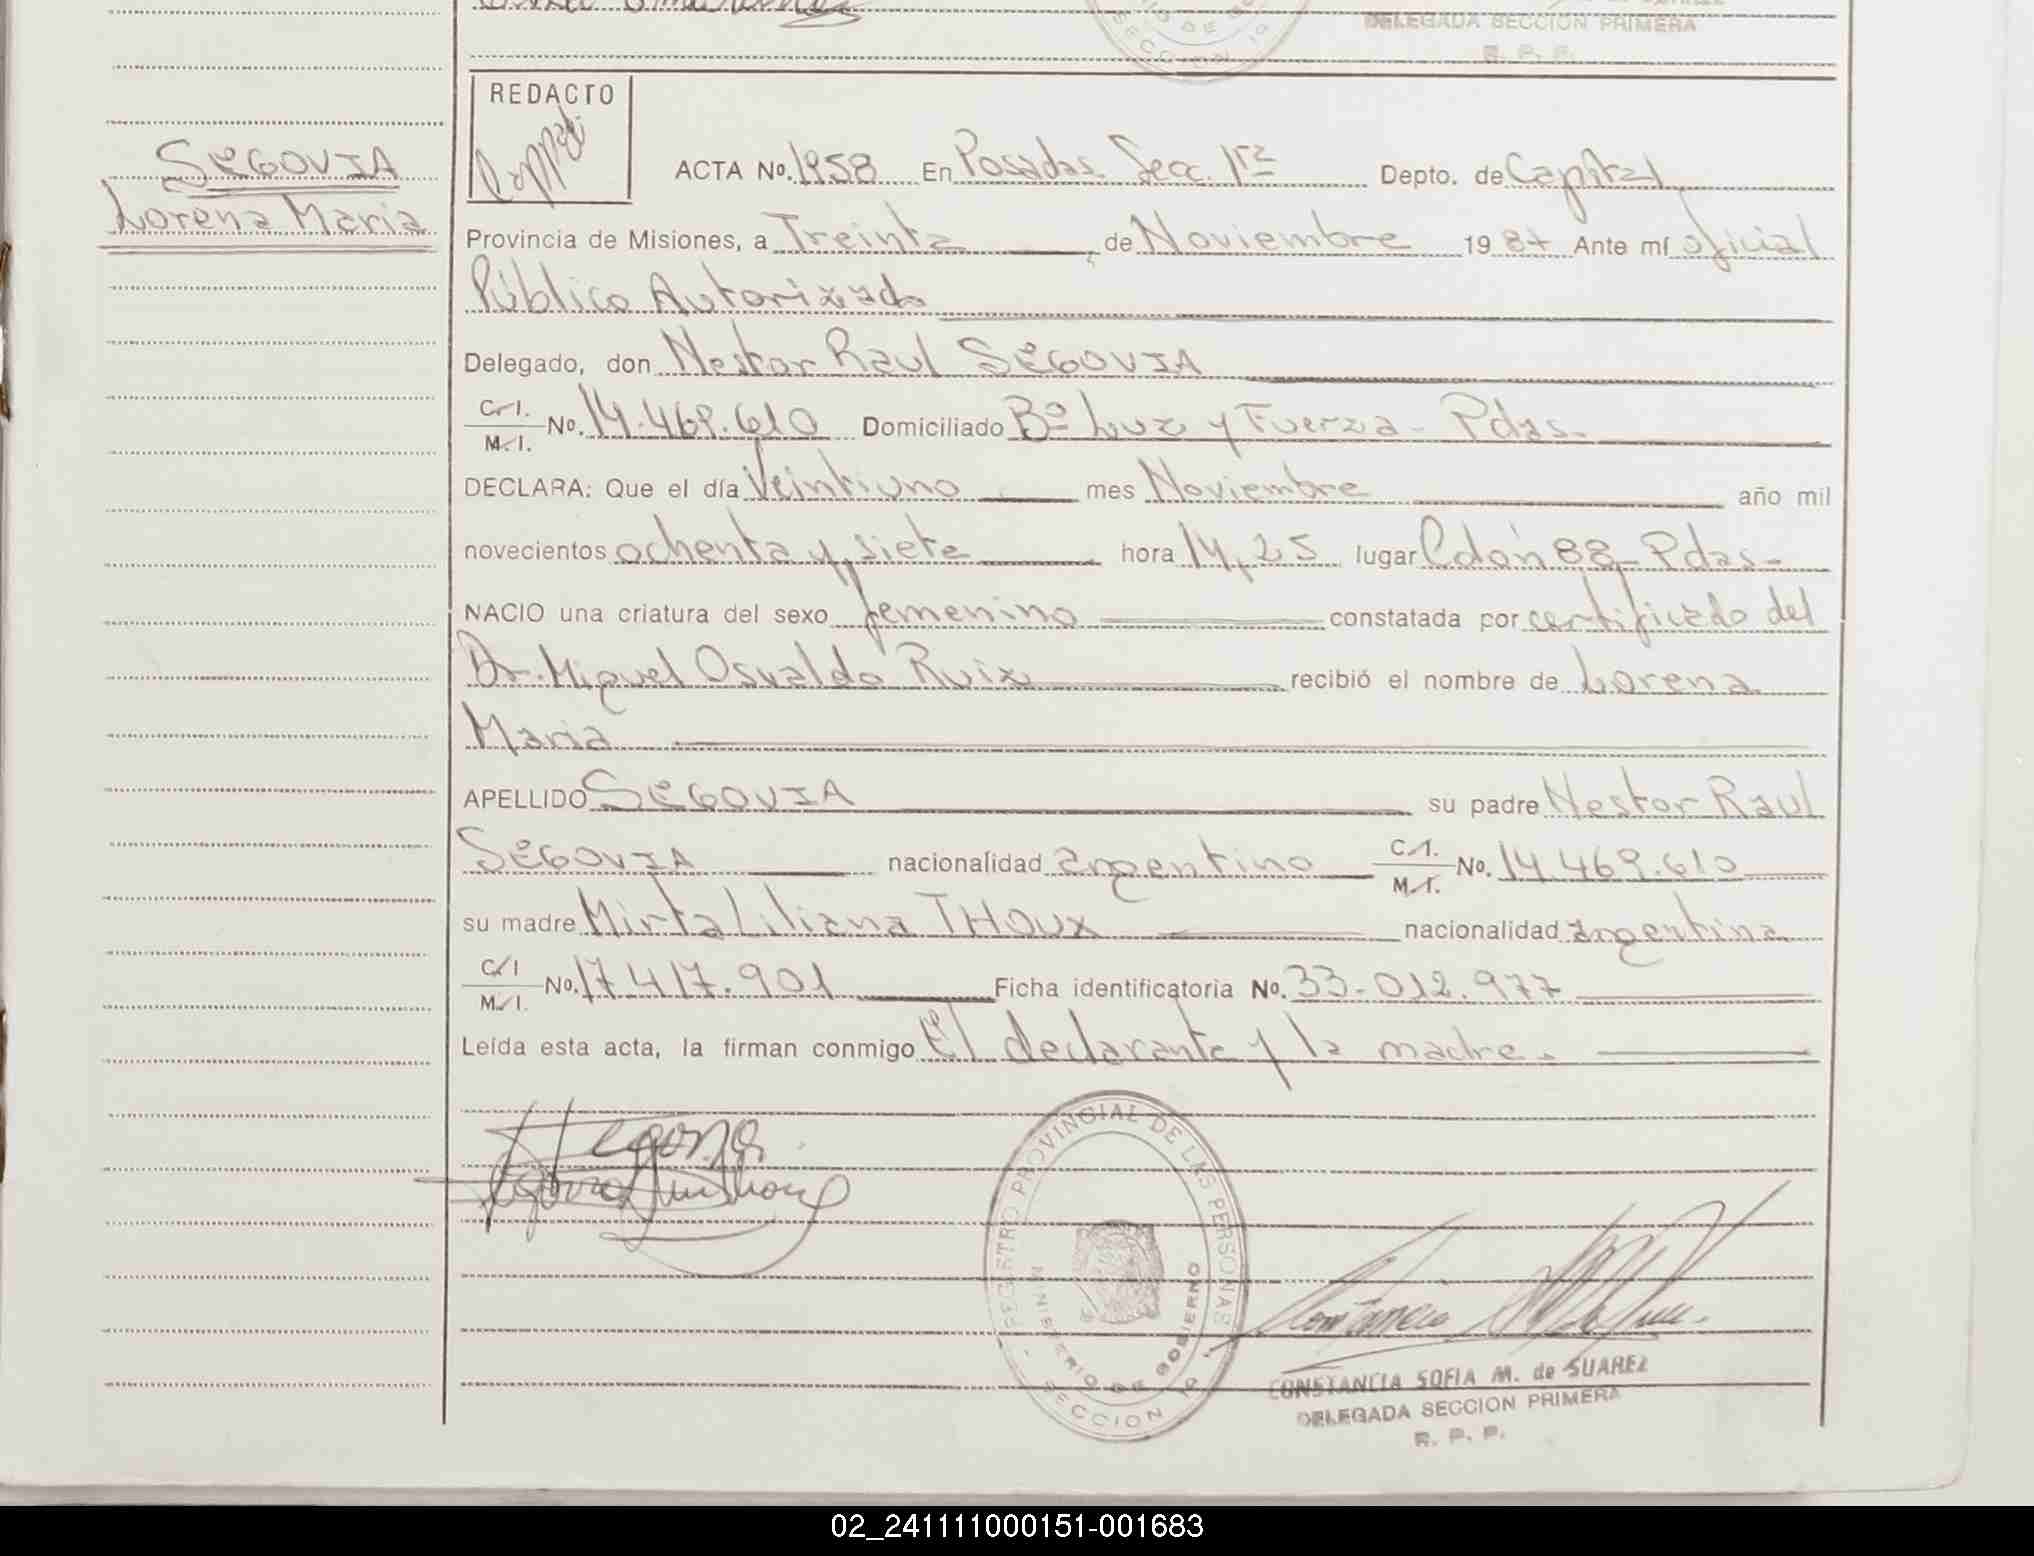 DELEGADA SECCION PRIMERA
R. P. P.
REDACTO
SEGOVIA
Lorena Maria
ACTA No. 1958 En Posadas Secc. 1ra Depto. de Capital
Provincia de Misiones, a Treinta de Noviembre 1987 Ante mí oficial
Público Autorizado
Delegado, don Nestor Raul SEGOVIA
C. I. / M. I. No. 14.469.610 Domiciliado Bº Luz y Fuerza - Pdas.
DECLARA: Que el día Veintiuno mes Noviembre año mil
novecientos ochenta y siete hora 14,25 lugar Colón 88 - Pdas -
NACIO una criatura del sexo femenino constatada por certificado del
Dr. Miguel Osvaldo Ruiz recibió el nombre de Lorena
Maria
APELLIDO SEGOVIA su padre Nestor Raul
SEGOVIA nacionalidad argentino C. I. / M. I. No. 14.469.610
su madre Mirta Liliana THOUX nacionalidad argentina
C/I / M. I. No. 17.417.901 Ficha identificatoria No. 33.012.977
Leída esta acta, la firman conmigo El declarante y la madre.
REGISTRO PROVINCIAL DE LAS PERSONAS
MINISTERIO DE GOBIERNO
SECCION 1º
CONSTANCIA SOFIA M. de SUAREZ
DELEGADA SECCION PRIMERA
R. P. P.
02_241111000151-001683